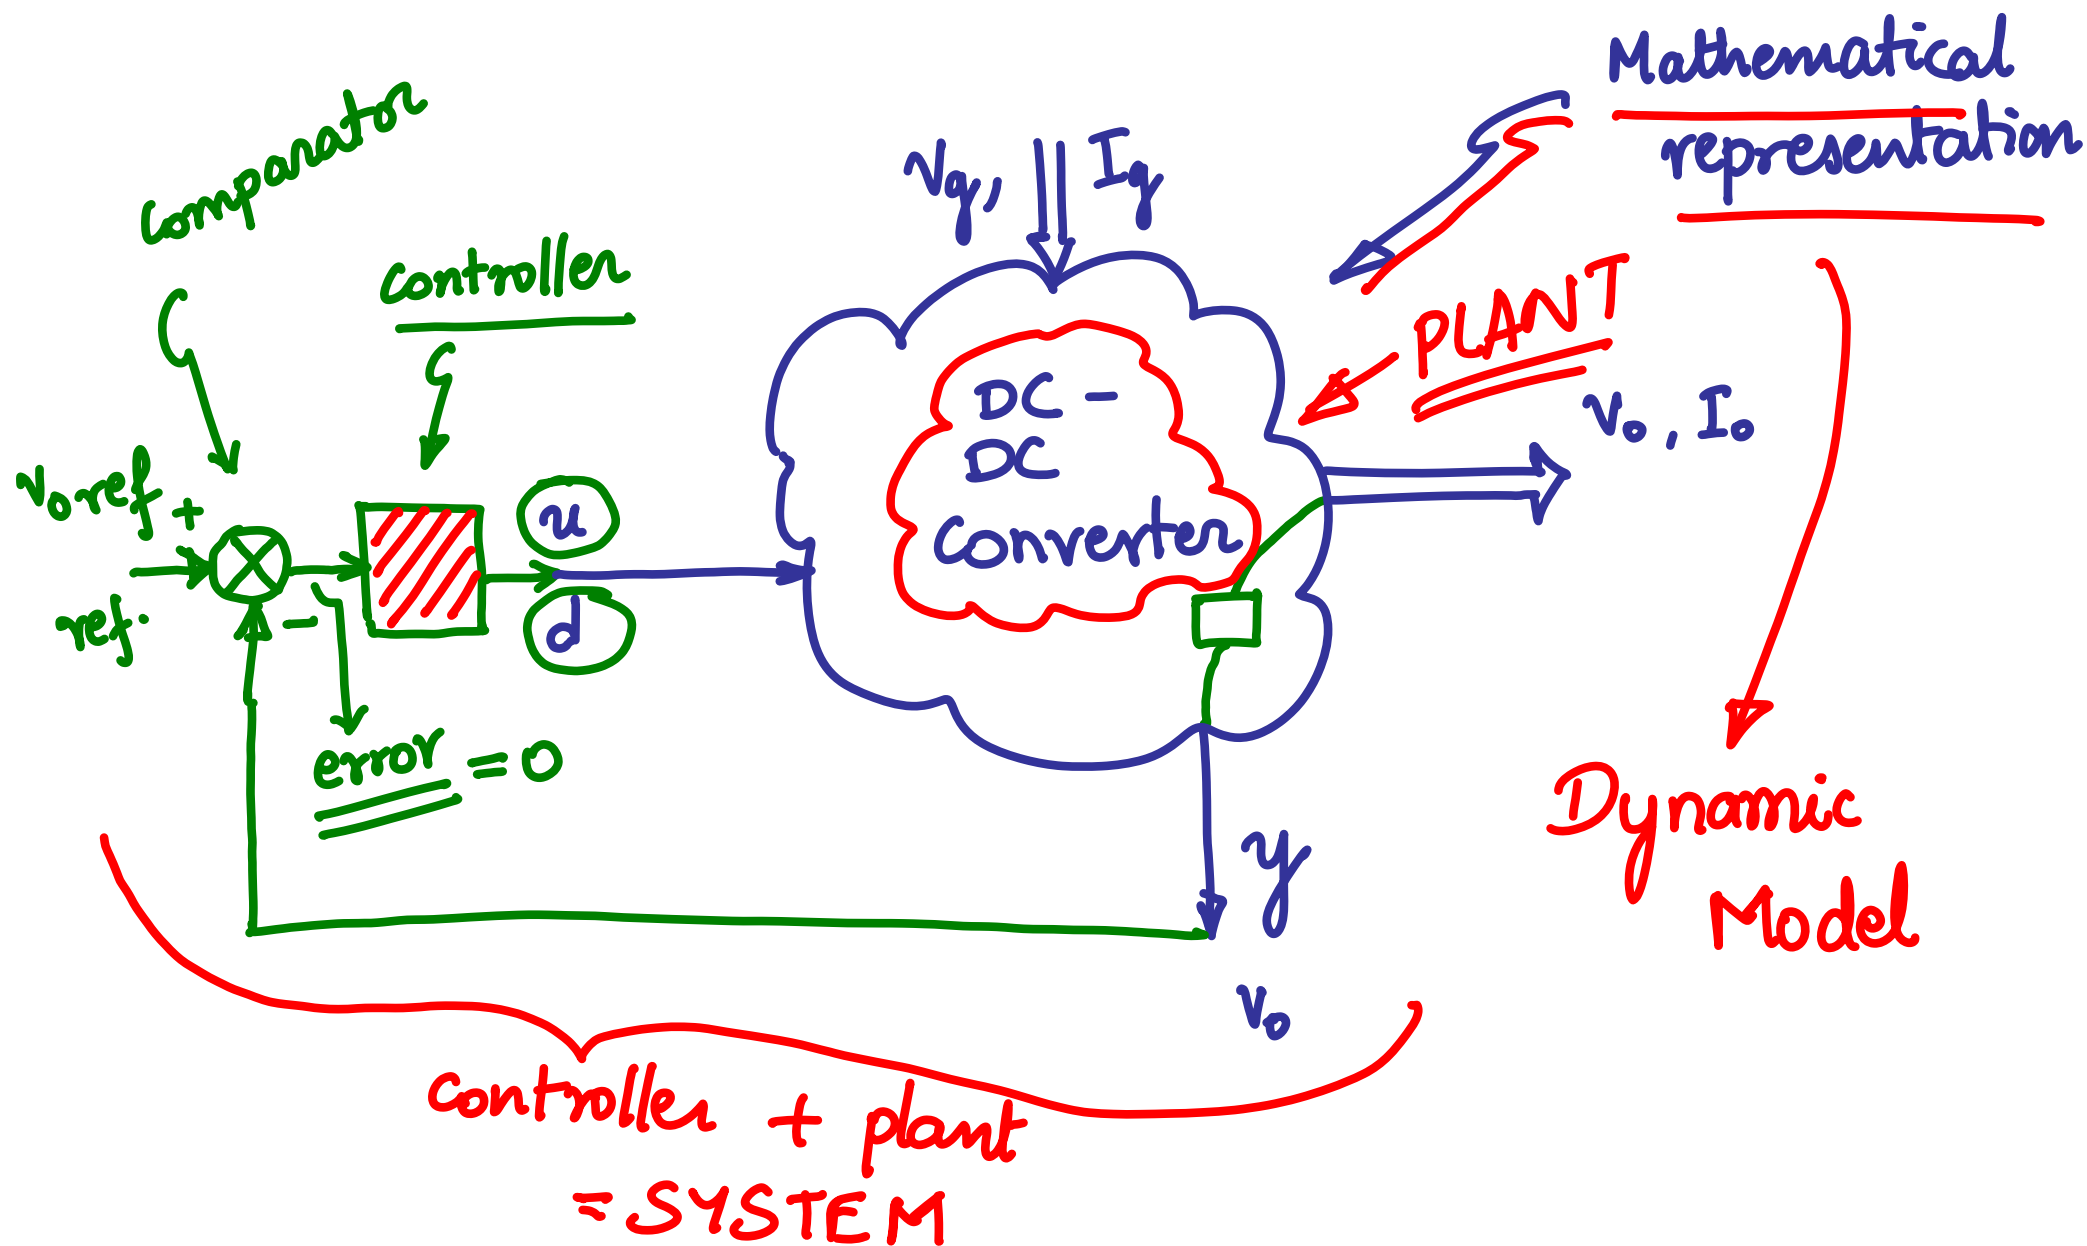 Mathematical
representation
comparator
Vg, Ig
controller
PLANT
DC -
DC
Converter
Vo, Io
Vo ref +
u
ref.
-
d
error = 0
Dynamic
Model
y
Vo
controller + plant
= SYSTEM